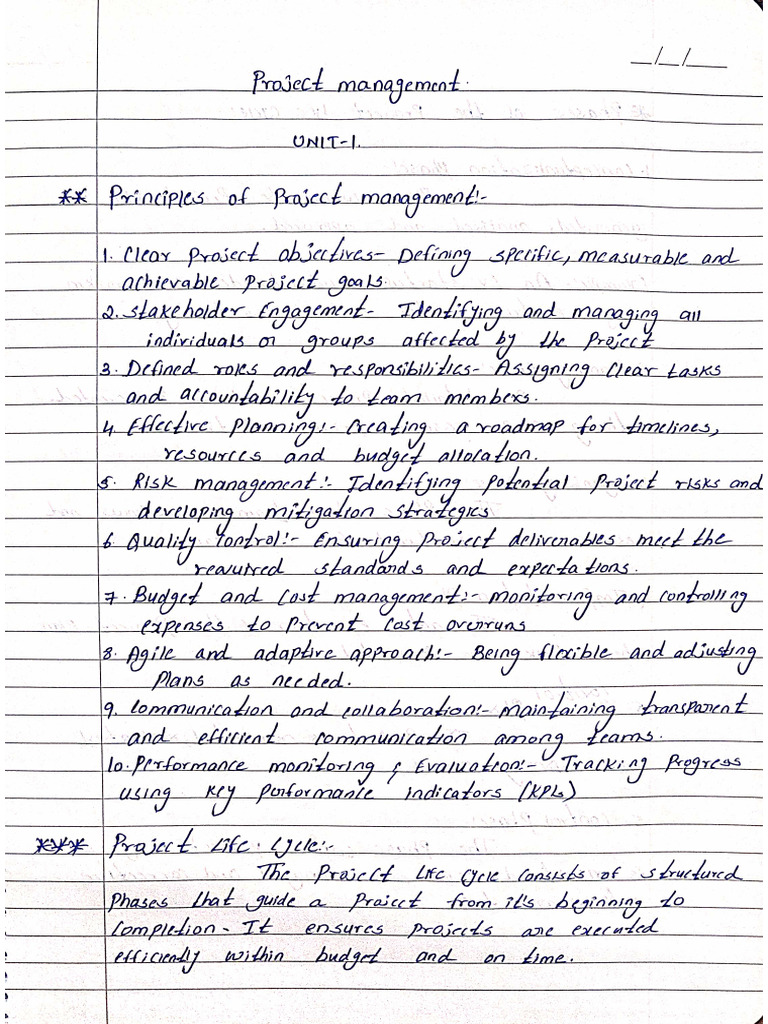 _/_/__
Project management.
UNIT-1.
** Principles of Project management:-
1. Clear Project objectives- Defining specific, measurable and
achievable Project goals.
2. Stakeholder Engagement- Identifying and managing all
individuals or groups affected by the Project
3. Defined roles and responsibilities- Assigning Clear tasks
and accountability to team members.
4. Effective Planning:- Creating a roadmap for timelines,
resources and budget allocation.
5. Risk management:- Identifying potential Project risks and
developing mitigation strategies
6. Quality Control:- Ensuring Project deliverables meet the
required standards and expectations.
7. Budget and Cost management:- monitoring and controlling
expenses to Prevent Cost overruns
8. Agile and adaptive approach:- Being flexible and adjusting
Plans as needed.
9. Communication and collaboration:- maintaining transparent
and efficient communication among teams.
10. Performance monitoring & Evaluation:- Tracking Progress
using Key Performance Indicators (KPIs)
*** Project Life Cycle:-
The Project Life Cycle consists of structured
Phases that guide a Project from it's beginning to
Completion- It ensures projects are executed
efficiently within budget and on time.